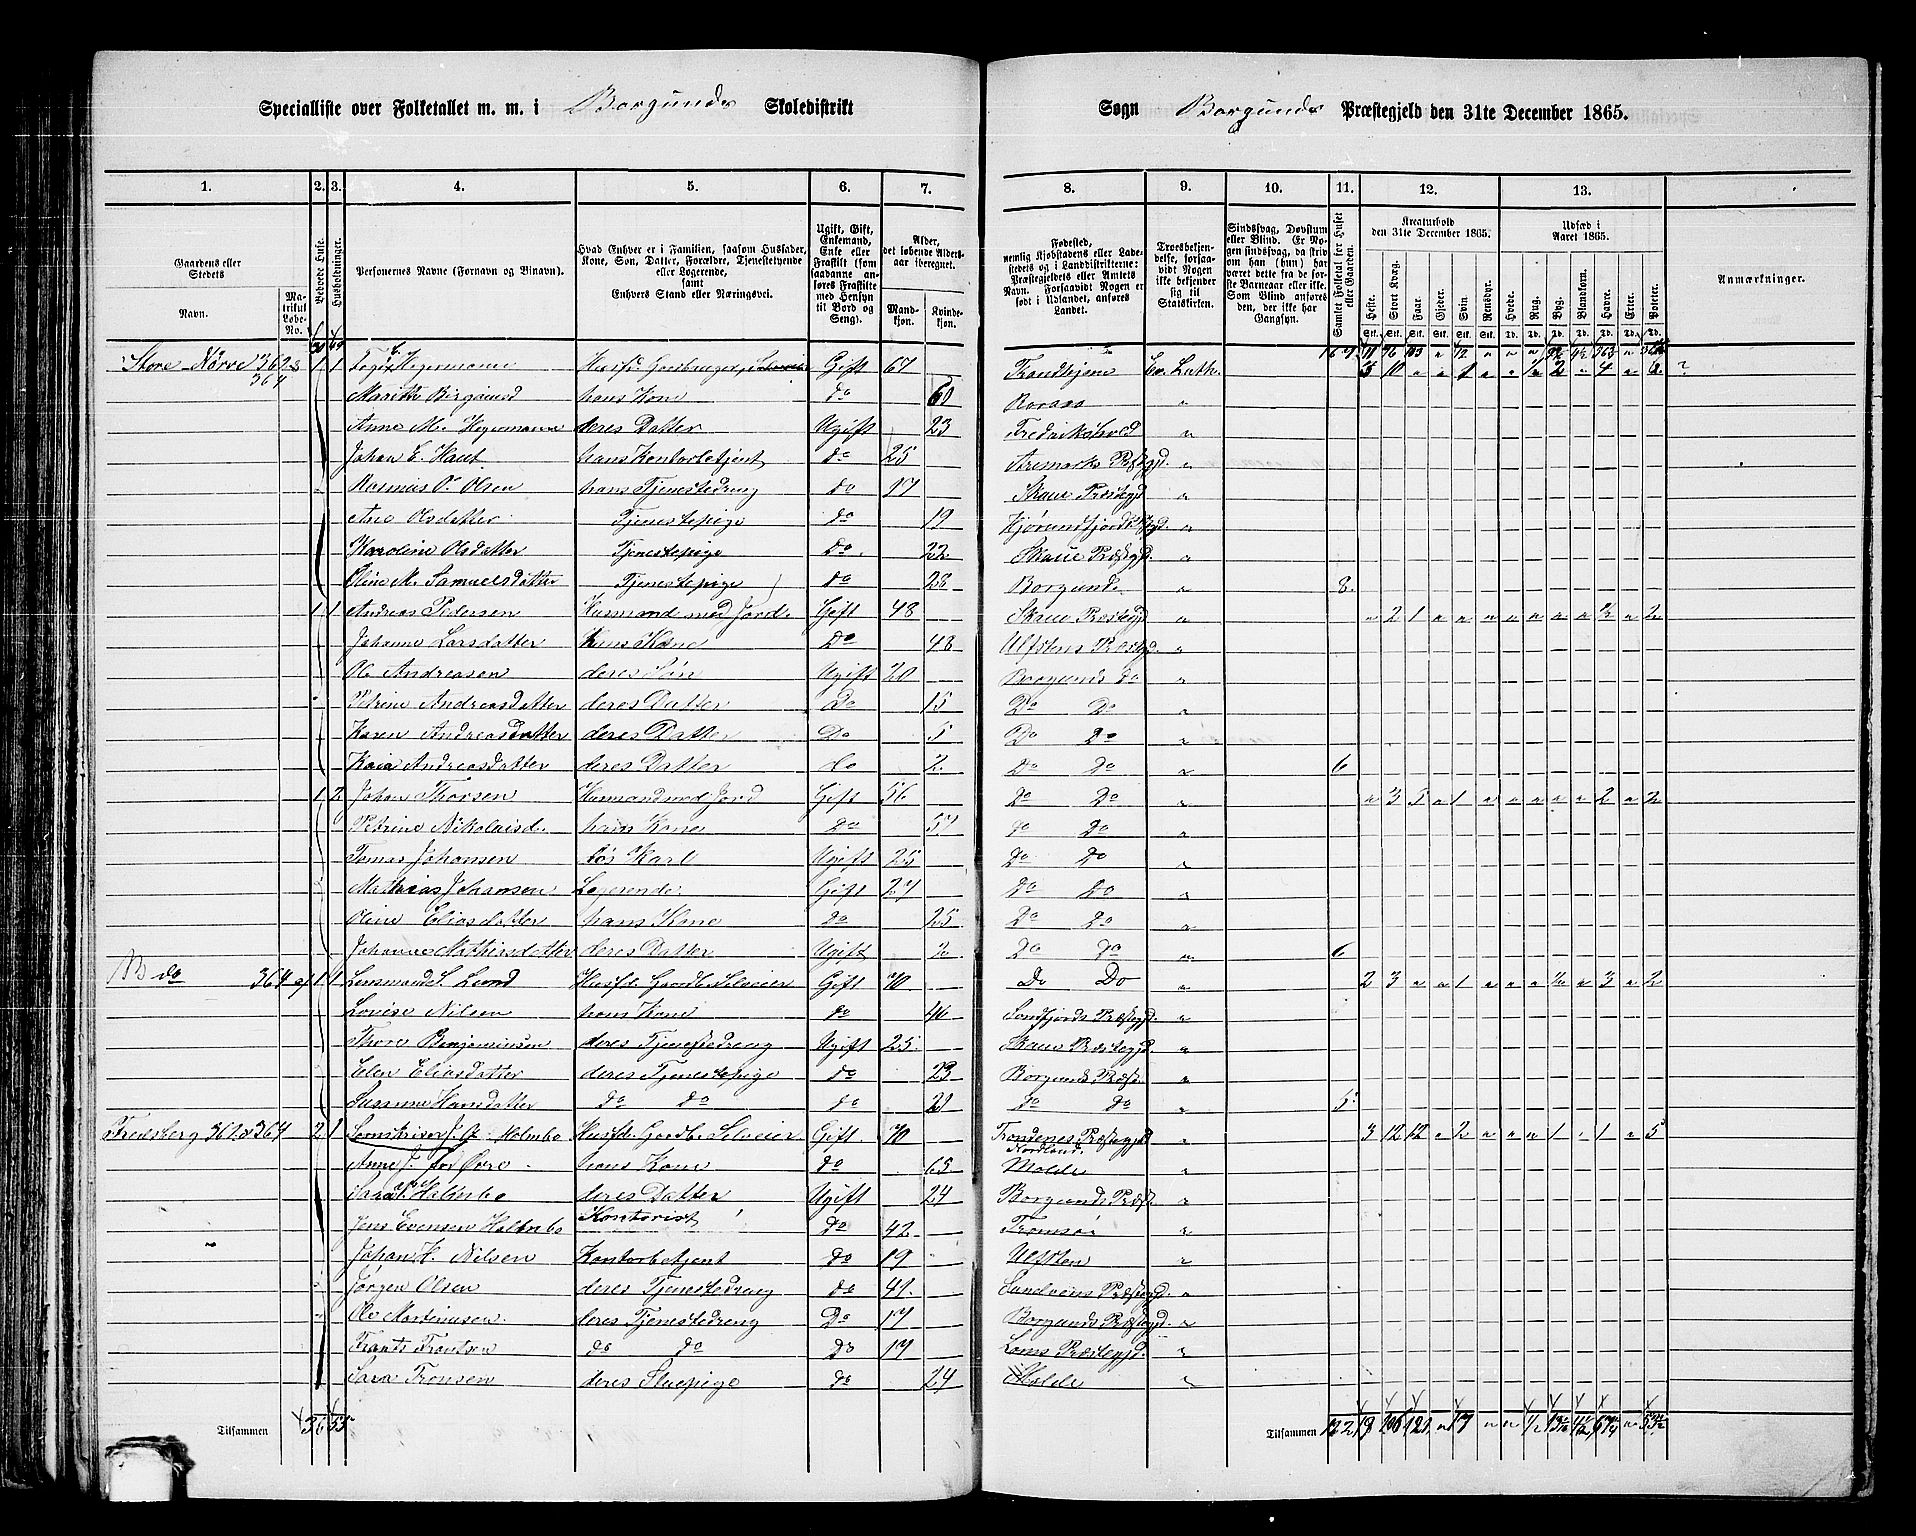 Specialliste over Folketallet m. m. i Borgunds Skoledistrikt
Sogn Borgunds Præstegjeld den 31te December 1865.
1. 2. 3. 4. 5. 6. 7. 8. 9. 10. 11. 12. 13.
Gaardens eller Stedets
Navn.
Matrikul Løbe-No.
Beboede Huse.
Husholdninger.
Personernes Navne (Fornavn og Binavn).
Hvad Enhver er i Familien, saasom Husfader, Kone, Søn, Datter, Forældre, Tjenestetyende eller Logerende, samt Enhvers Stand eller Næringsvei.
Ugift, Gift, Enkemand, Enke eller Fraskilt (som saadanne anføres Fraskilte med Hensyn til Bord og Seng).
Alder, det løbende Alders-aar iberegnet.
Mandkjøn.
Kvindekjøn.
Fødested, nemlig Kjøbstadens eller Ladestedets og i Landdistrikterne: Præstegjeldets eller Amtets Navn. Forsaavidt Nogen er født i Udlandet, anføres Landet.
Troesbekjendelse, forsaavidt Nogen ikke bekjender sig til Statskirken.
Sindssvag, Døvstum eller Blind. Er Nogen sindssvag, da tilføies om han (hun) har været dette fra de første Barneaar eller ikke. Som Blind anføres den, der ikke har Gangsyn.
Samlet Folketal for Huset eller Gaarden.
Kreaturhold den 31te December 1865.
Heste. Stort Kvæg. Faar. Gjeder. Svin. Rensdyr.
Udsæd i Aaret 1865.
Hvede. Rug. Byg. Blandkorn. Havre. Erter. Poteter.
Anmærkninger.
Store Nörve 362 & 364 1 1 Hegermann Gift 67 Trondhjem Ev. Luth. 3 10 " " 1 " " 1/2 2 " 4 " 6 ?
Marith Birgamsd hans Kone do 60 "
Anne M. Hegermann deres Datter Ugift 23 Fredrikshald "
Johan E. Haut hans Kontorbetjent do 25 Aremarks Præstegjd. "
Rasmus P. Olsen hans Tjenestedreng do 17 Skaue Præstegjd "
Ane Olsdatter Tjenestepige do 19 Hjørundfjords "
Karoline Olsdatter Tjenestepige do. 22 Skaue Præstegjd. "
Oline M. Samuelsdatter Tjenestepige do 28 Borgunds 8.
1 1 Andreas Pedersen Husmand med Jord Gift 48 Skaue Præstegjd " " 2 1 " " " " " " " 1/2 " 2
Johanne Larsdatter hans Kone Do 48 Ulfstens Præstegjd. "
Ole Andreasen deres Søn Ugift 20 Borgunds do "
Petrine Andreasdatter deres Datter Do 15 Do Do "
Karen Andreasdatter deres Datter Do 5 Do Do "
Kaia Andreasdatter deres Datter do 2 Do Do " 6
1 2 Johan Thorsen Husmand med Jord Gift 56 Do Do " " 3 5 " 1 " " " " " 2 " 2
Petrine Nikolaisd. hans Kone Do 57 Do Do "
Tomas Johansen løs Karl Ugift 25 Do Do "
Mathias Johansen Logerende Gift 27 Do Do "
Oline Eliasdatter hans Kone do 25 Do Do "
Johanne Mathisdatter deres Datter Ugift 2 Do Do " 6
B do 364 a/ 1 1 Lensmand S. Lund Husfd. Gaardb. Selveier Gift 70 Do Do " 2 3 " " 1 " " " 1/2 " 3 " 2
Lovise Nilsen hans Kone do 46 Sondfjords Præstegjd. "
Thore Benjaminsen deres Tjenestedreng Ugift 25. Skaue Præstegjd. "
Elen Eliasdatter deres Tjenestepige do 23 Borgunds Præst. "
Susanne Hansdatter Do Do do 21 Do Do " 5
Fredsberg 362 & 364 2 1 Sorenskriver J. G. Holmbo Husfd. Gaardb. Selveier Gift 70 Trondenes Præstegjd Nordland. " 3 12 12 " 2 " " " 1 " 1 " 5
Anne J. fød Øvre hans Kone do 65 Molde "
Sara Holmbo deres Datter Ugift 24 Borgunds Præst. "
Jens Evensen Holmbo Kontorist Do 42 Tromsø "
Johan H. Nilsen Kontorbetjent do 19 Ulfsten "
Jörgen Olsen deres Tjenestedreng do 41. Præstegjd. "
Ole Martinusen. deres Tjenestedreng Do 17 Borgunds Præstegjd. "
Frants Frantsen do do Do 17 Loms Præstegjd. "
Sara Tronsen deres Stuepige do 24 Molde "
Tilsammen 36 55
Tilsammen 122